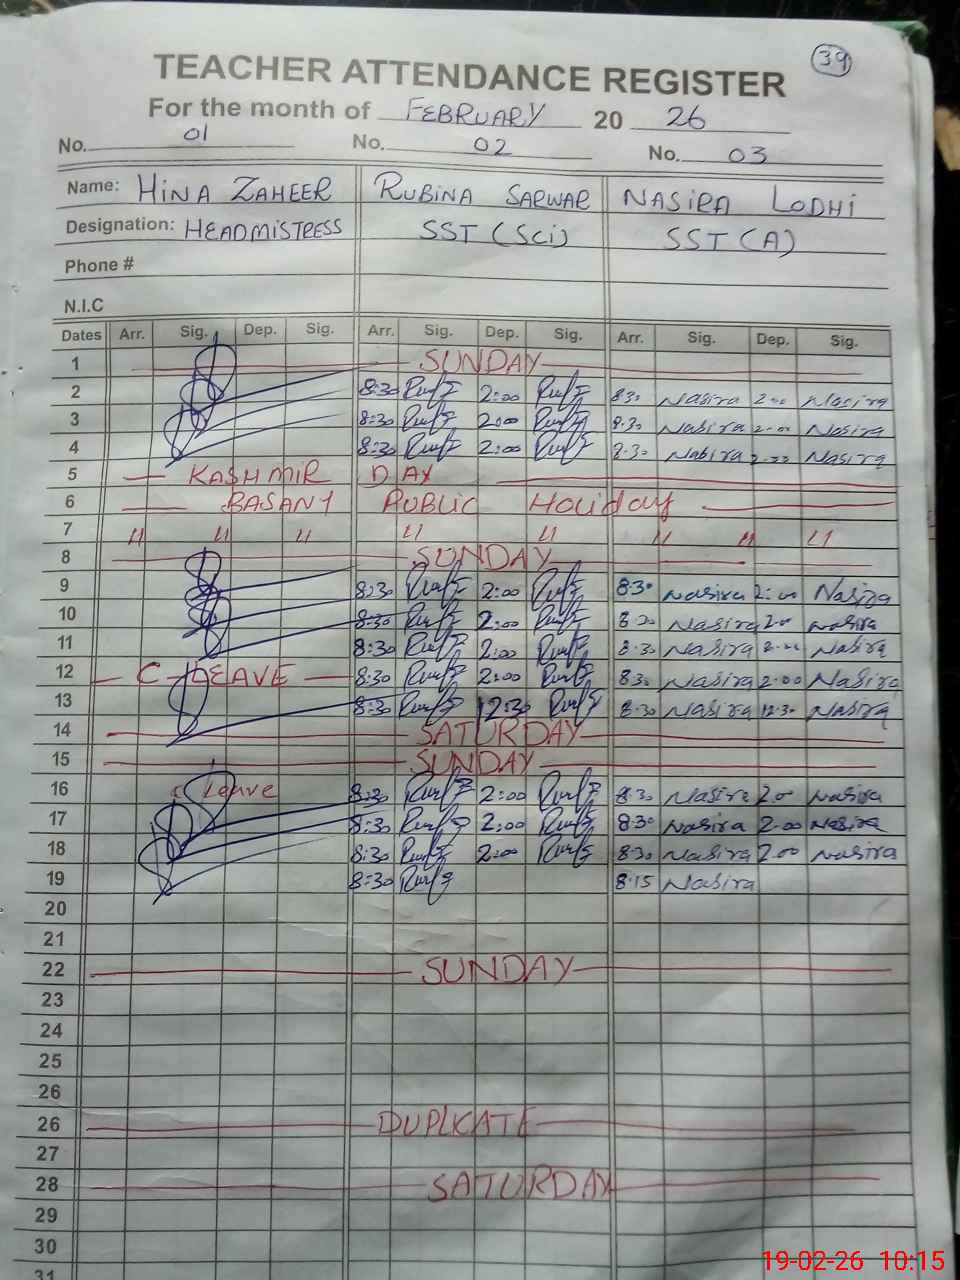 39
TEACHER ATTENDANCE REGISTER
For the month of FEBRUARY 20 26
No. 01 No. 02 No. 03
Name: HINA ZAHEER RUBINA SARWAR NASIRA LODHI
Designation: HEADMISTRESS SST (Sci) SST (A)
Phone #
N.I.C
Dates Arr. Sig. Dep. Sig. Arr. Sig. Dep. Sig. Arr. Sig. Dep. Sig.
1 SUNDAY
2 8:30 2:00 8:30 Nasira 2:00 Nasira
3 8:30 2:00 8:30 Nasira 2:00 Nasira
4 8:30 2:00 8:30 Nasira 2:00 Nasira
5 KASHMIR DAY
6 BASANT PUBLIC Holiday
7 " " " " " " " "
8 SUNDAY
9 8:30 2:00 8:30 Nasira 2:00 Nasira
10 8:30 2:00 8:30 Nasira 2:00 Nasira
11 8:30 2:00 8:30 Nasira 2:00 Nasira
12 C-LEAVE 8:30 2:00 8:30 Nasira 2:00 Nasira
13 8:30 12:30 8:30 Nasira 12:30 Nasira
14 SATURDAY
15 SUNDAY
16 leave 8:30 2:00 8:30 Nasira 2:00 Nasira
17 8:30 2:00 8:30 Nasira 2:00 Nasira
18 8:30 2:00 8:30 Nasira 2:00 Nasira
19 8:30 8:15 Nasira
20
21
22 SUNDAY
23
24
25
26
26 DUPLICATE
27
28 SATURDAY
29
30
31
19-02-26 10:15